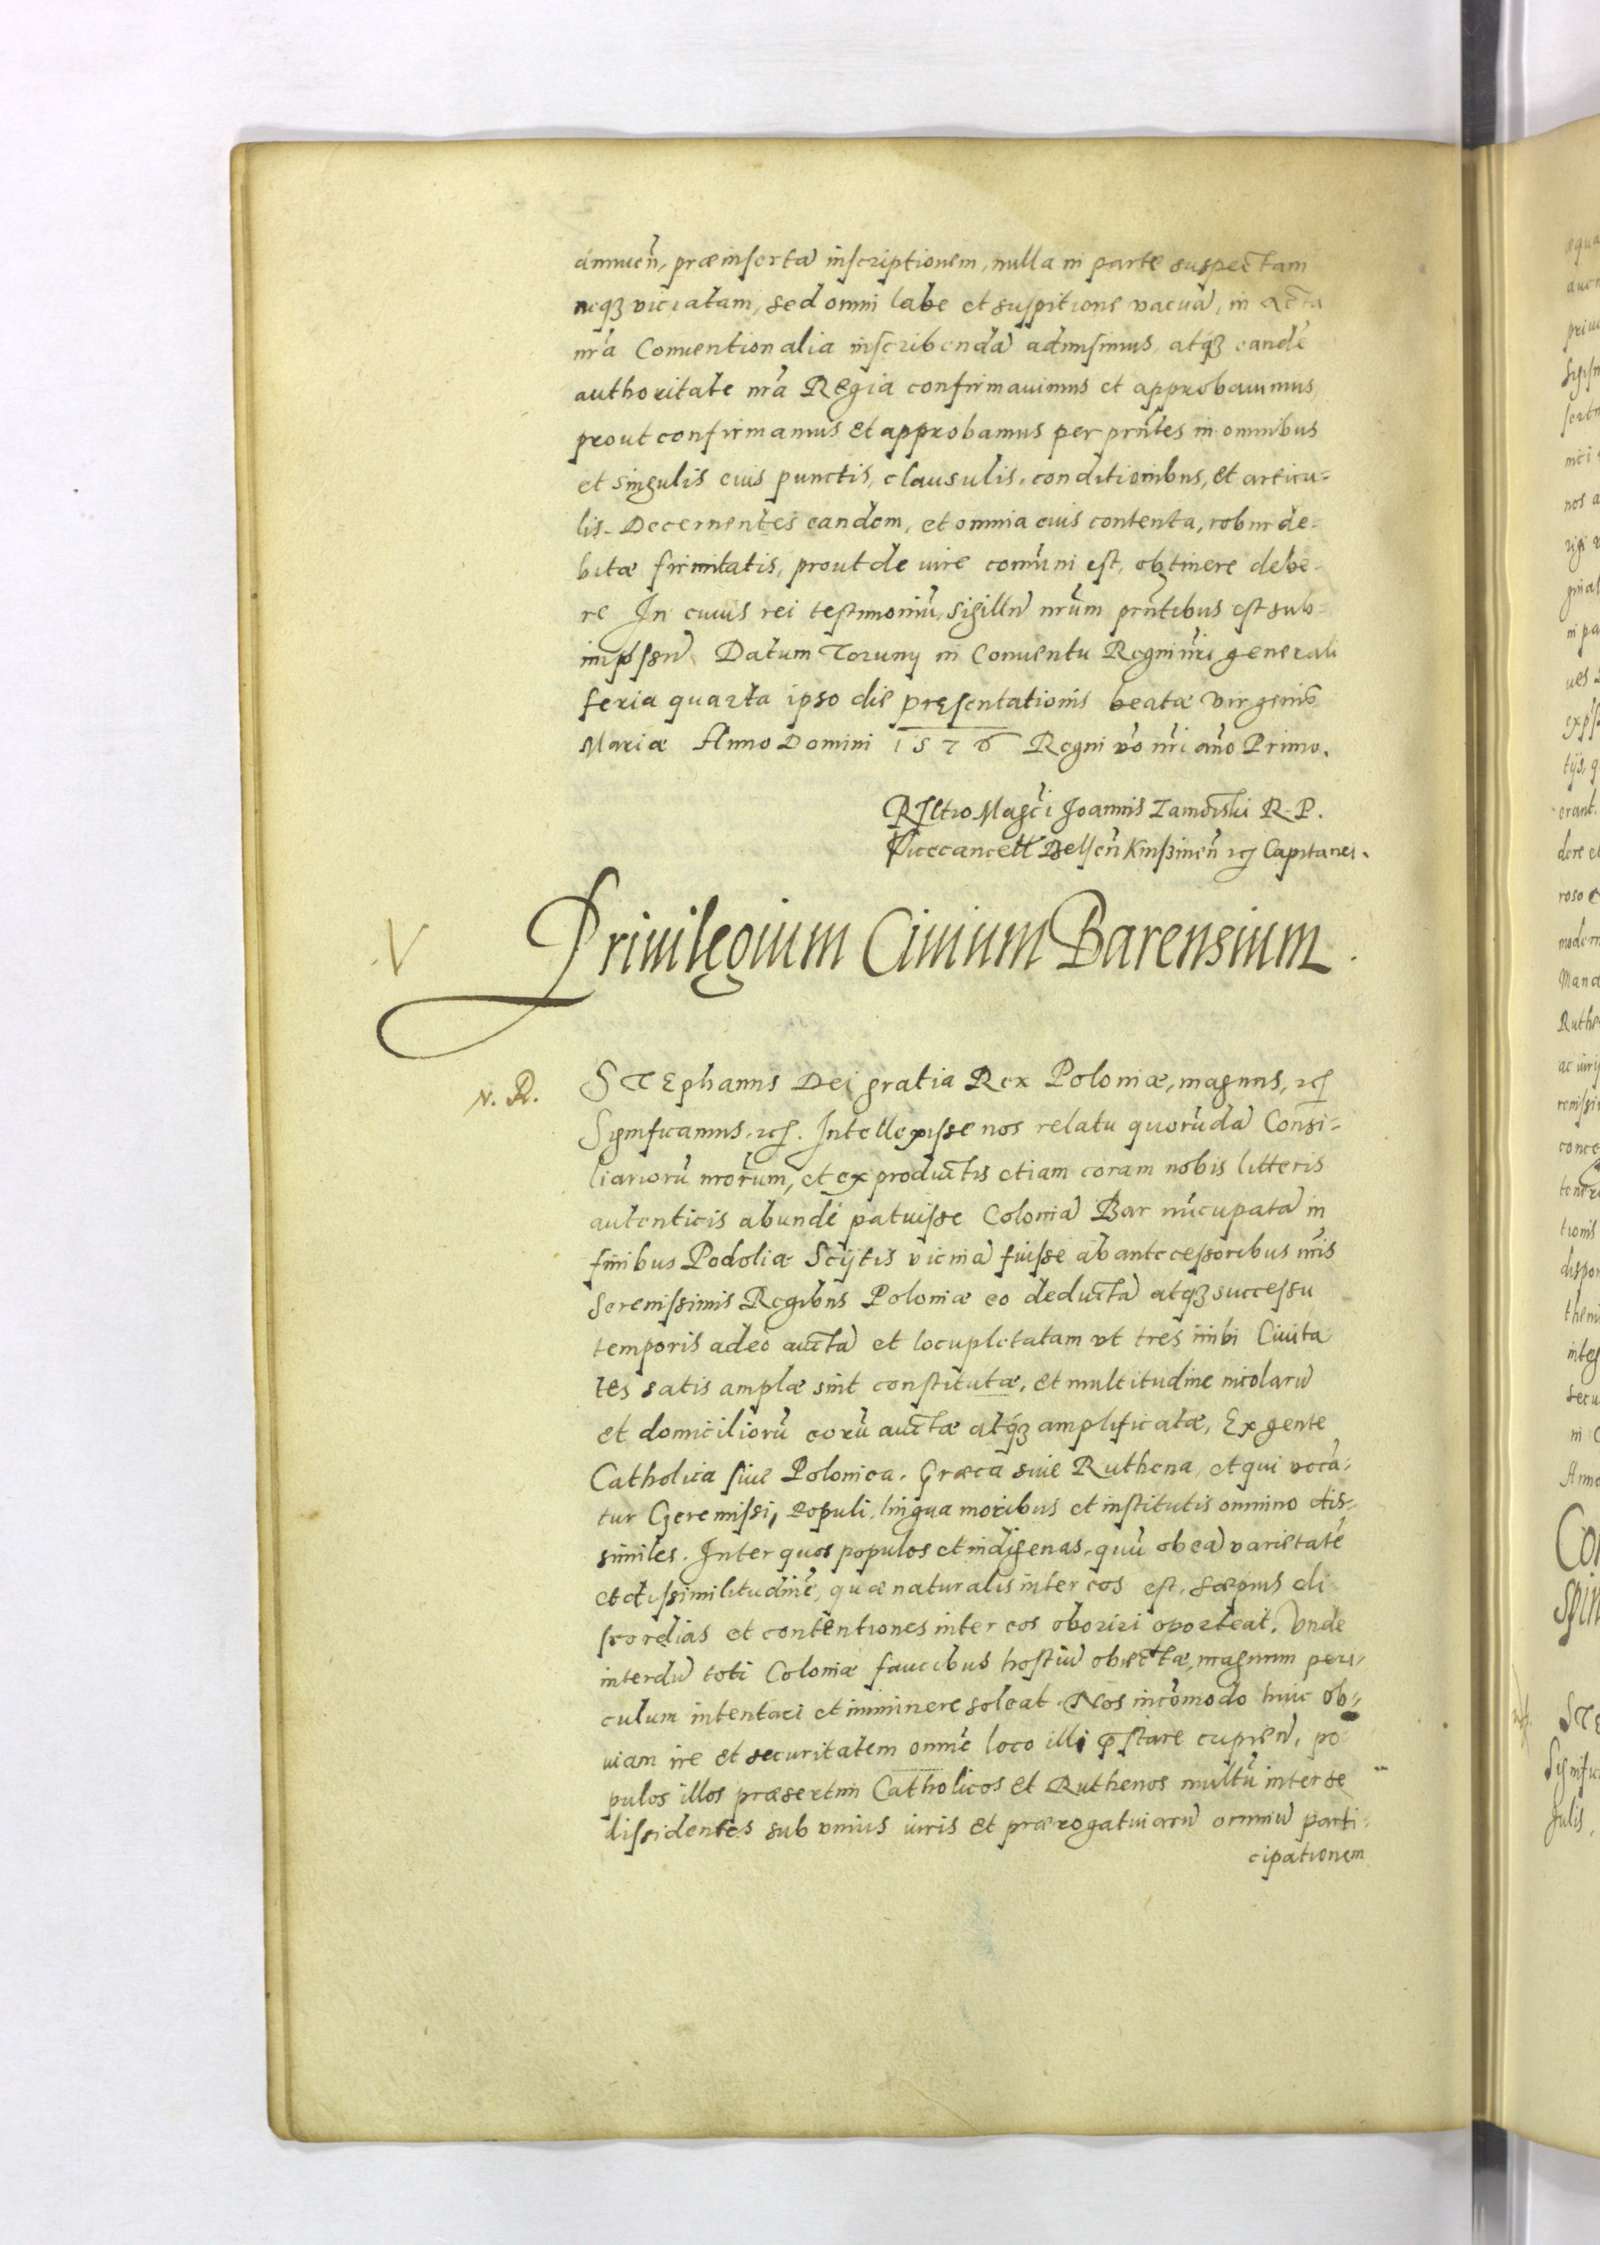 annuen̄, præinsertā inscriptionem, nulla in parte suspectam
neqꝫ viciatam, sed omni labe et suspitione vacuā, in acta
nr̄a Conuentionalia inscribendā admisimus, atqꝫ eandē
authoritate nr̄a Regia confirmauimus et approbauimus,
prout confirmamus et approbamus per pr̄ntes in omnibus
et singulis eius punctis, clausulis, conditionibus, et articu-
lis. Decernentes eandem, et omnia eius contenta, robur de-
bitæ firmitatis, prout de iure com̄uni est, obtinere debe-
re In cuius rei testimoniū, sigillū nr̄um pr̄ntibus est sub-
impssū. Datum Toruny in Conuentu Regni nr̄i generali
feria quarta ipso die presentationis beatæ Virginis
Mariæ Anno Domini 1576 Regni v̄o nr̄i ann̄o Primo.
Joannis Zamoiski R. P.
Vicecancell Belsen̄ Knißinen̄ ꝛcꝭ Capitanei.
V
Priuilęgium Ciuium Barensium.
N. R.
STEphanus Dei gratia Rex Poloniæ, magnus, ꝛcꝭ
Significamus, ꝛcꝭ. Intellexisse nos relatu quorūdā Consi-
liariorū nr̄orum, et ex productis etiam coram nobis litteris
autenticis abundé patuisse Coloniā Bar nūcupatā in
finibus Podoliæ Scijtis vicinā fuisse ab antecessoribus nr̄is
Serenissimis Regibus Poloniæ eo deductā atqꝫ successu
temporis adeo auctā et locupletatam vt tres inibi Ciuita
tes satis amplæ sint constitutæ, et multitudine incolarū
et domiciliorū eorū auctæ atqꝫ amplificatæ, Ex gente
Catholica siue Polonica, Græca siue Ruthena, et qui vocā-
tur Czeremissi, populi, lingua moribus et institutis omnino dis-
similes. Inter quos populos et indigenas, quū ob eā varietatē
et dissimilitudinē, quæ naturalis inter eos est, sæpius di
scordias et contentiones inter eos oboriri oporteat. Vnde
interdū toti Coloniæ faucibus hostiū obiectæ, magnum peri-
culum intentari et imminere soleat. Nos incōmodo huic ob-
uiam ire et securitatem omnē loco illi p̄stare cupien̄, po
pulos illos præsertim Catholicos et Ruthenos multū inter se
dissidentes sub vnius iuris et prærogatiuarū omniū parti-
cipationem